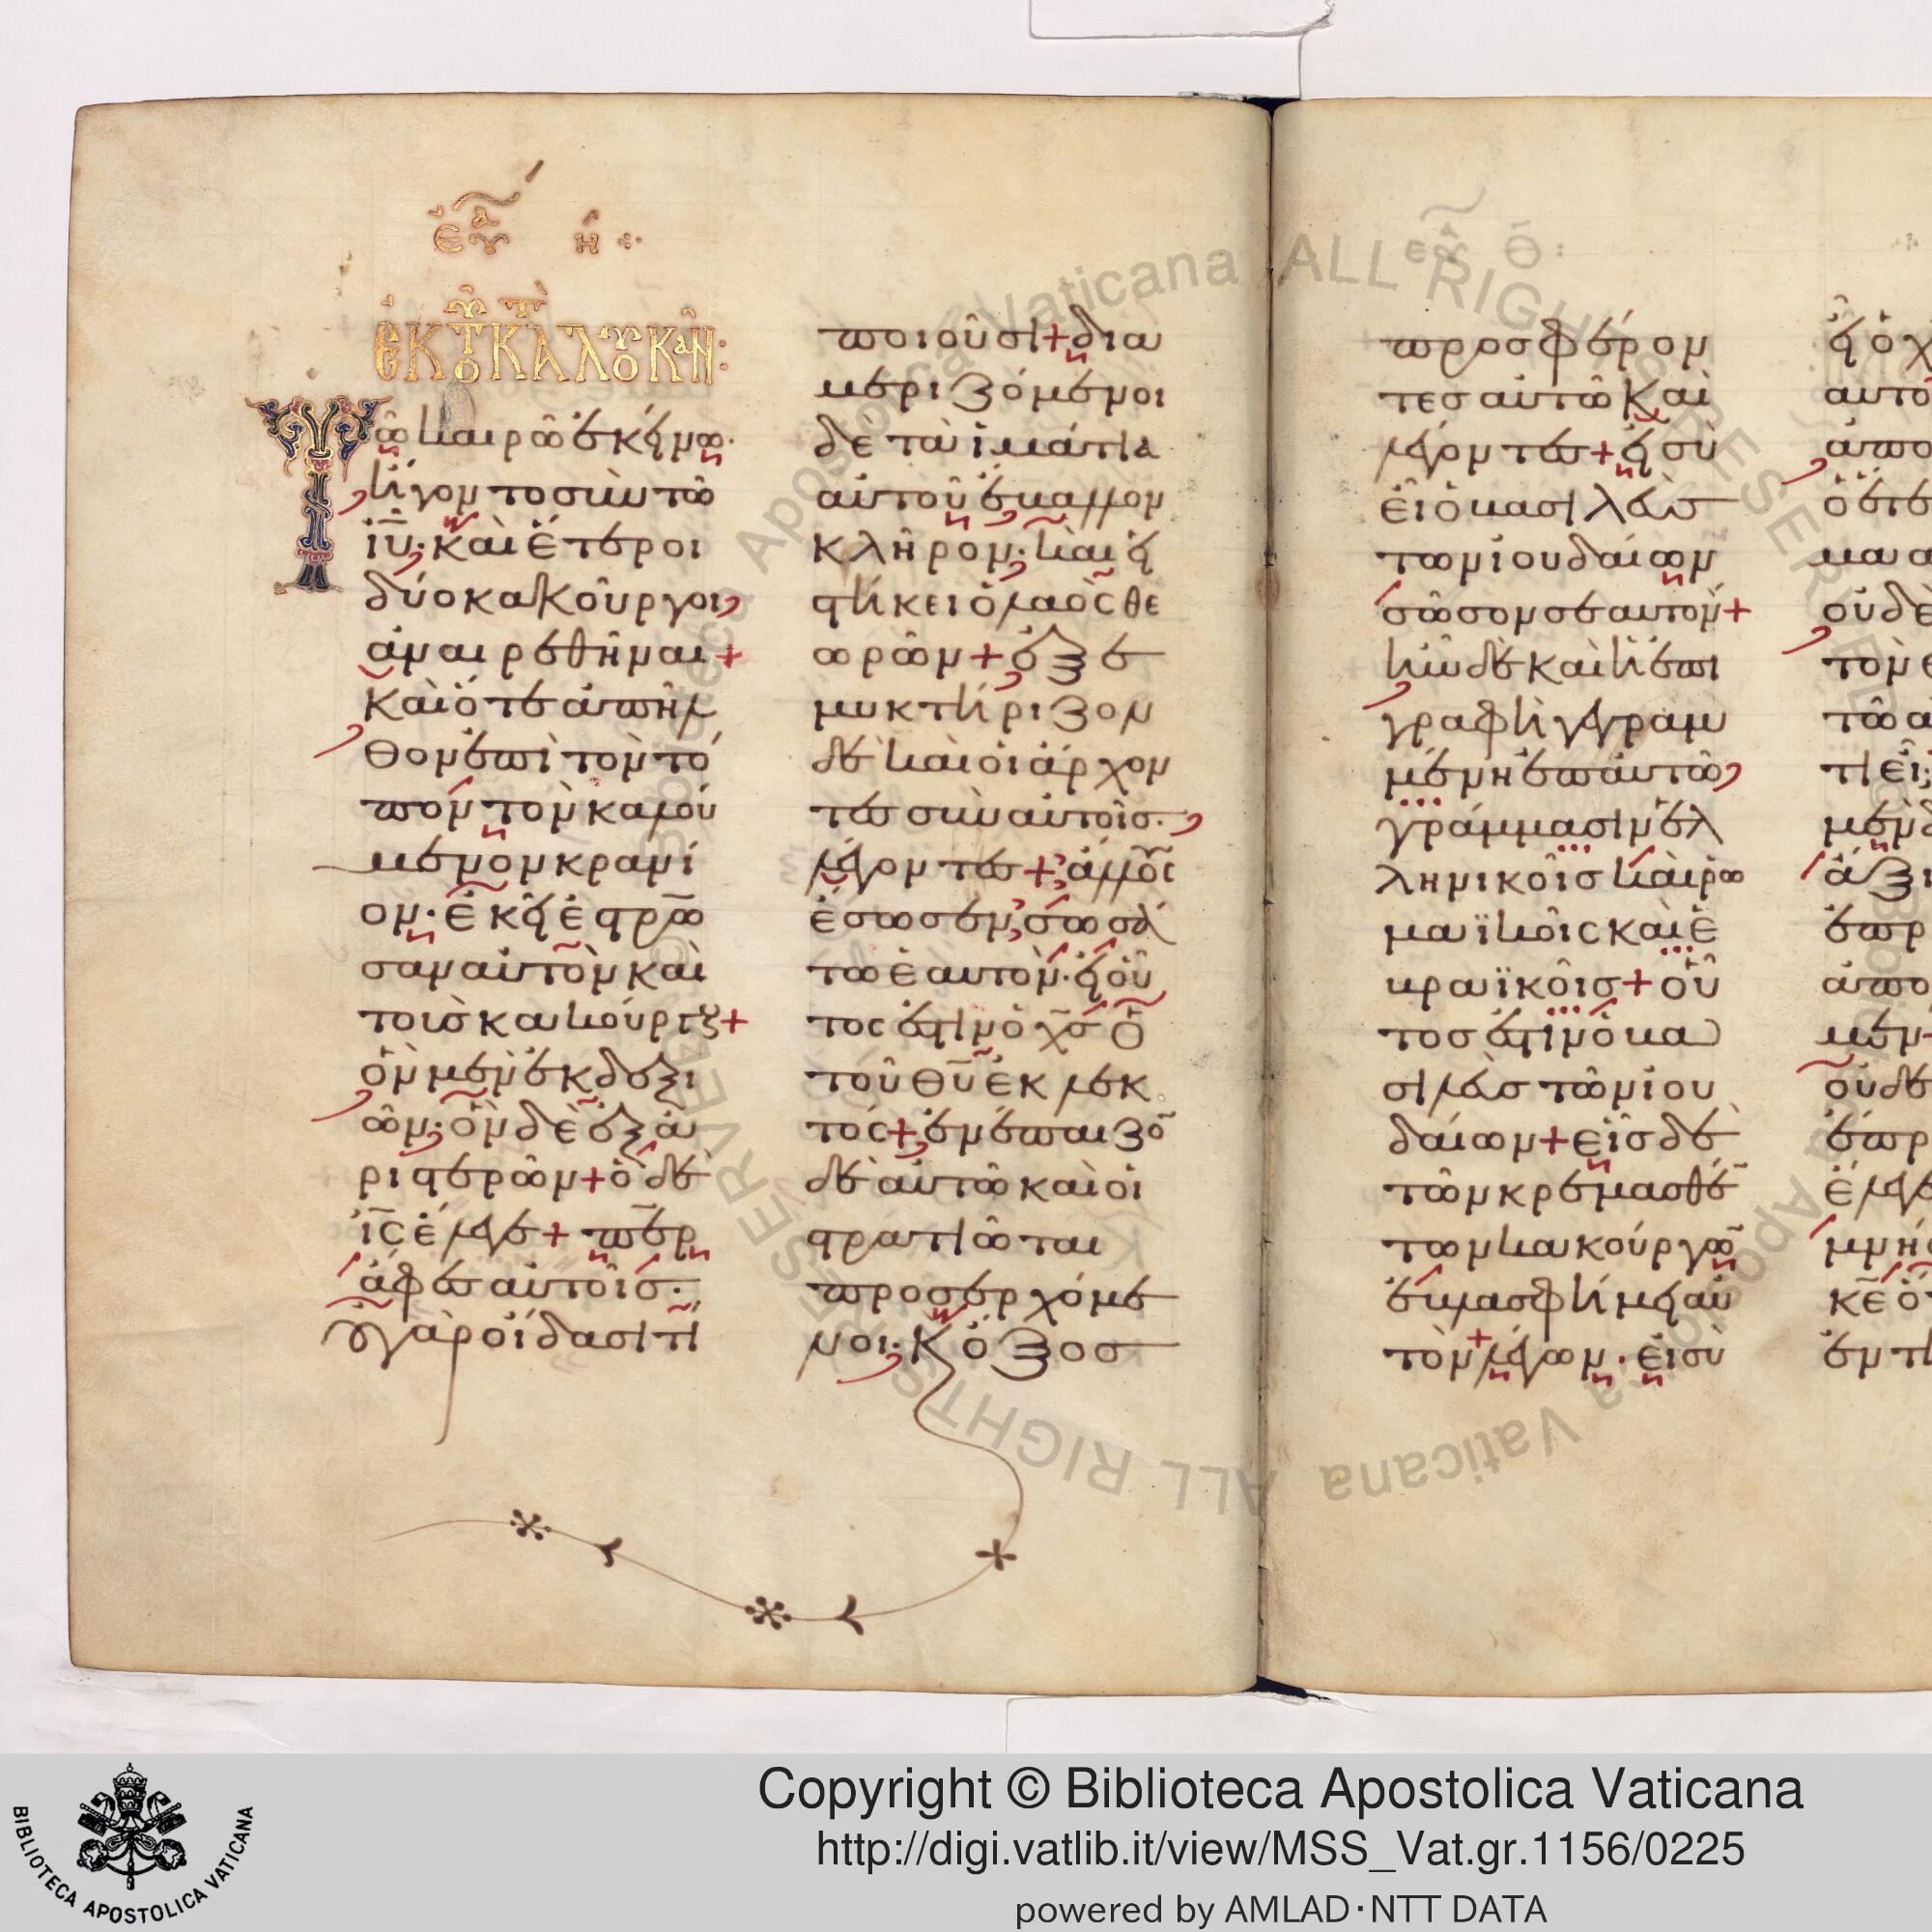 εὐα η
ἐκ τοῦ κατὰ λουκᾶν:
Τῶ καιρῶ ἐκείνω.
ἤγοντο σὺν τῶ
ιυ. καὶ ἕτεροι
δύο κακοῦργοι
ἀναιρεθῆναι+
καὶ ὅτε ἀπῆλ
θον ἐπὶ τὸν τό
πον τὸν καλού
μενον κρανί
ον. ἐκεῖ ἐστρω
σαν αὐτὸν καὶ
τοὺσ κακούργους+
ὃν μὲν ἐκ δεξι
ῶν. ὃν δὲ ἐξ ἀ
ριστερῶν+ ὁ δὲ
ις ἔλεγε+ περ
ἄφες αὐτοῖσ.
οὐ γὰρ οἴδασι τί
ποιοῦσι+ δια
μεριζόμενοι
δὲ τὰ ἱμάτια
αὐτοῦ ἔβαλλον
κλῆρον. καὶ εἱ
στήκει ὁ λαὸς θε
ωρῶν+ ἐξε
μυκτήριζον
δὲ καὶ οἱ ἄρχον
τες σὺν αὐτοῖσ.
λέγοντες+ ἄλλους
ἔσωσεν, σωσά
τω ἑαυτὸν. εἰ οὗ
τος ἐστιν ὁ χσ ὁ
τοῦ θυ ἐκλεκ
τός+ ἐνέπαιζον
δὲ αὐτῶ καὶ οἱ
στρατιῶται
προσερχόμε
νοι. κ ὄξοσ
εὐα θ:
προσφέρον
τεσ αὐτῶ καὶ
λέγοντες+ εἰ σὺ
εἶ ὁ βασιλεὺσ
τῶν ἰουδαίων
σῶσον σεαυτον+
ἦν δὲ καὶ ἡ ἐπι
γραφὴ γεγραμ
μένη ἐπ αὐτῶ
γράμμασιν ἑλ
ληνικοῖσ καὶ ρω
μαϊκοῖς καὶ ἑ
βραϊκοῖσ+ οὗ
τοσ ἐστιν ὁ βα
σιλεὺσ τῶν ἰου
δαίων+ εἷσ δὲ
τῶν κρεμασθέν
των κακούργων
ἐβλασφήμει αὐ
τὸν λέγων. εἰ σὺ
Copyright © Biblioteca Apostolica Vaticana
http://digi.vatlib.it/view/MSS_Vat.gr.1156/0225
powered by AMLAD·NTT DATA
BIBLIOTECA APOSTOLICA VATICANA